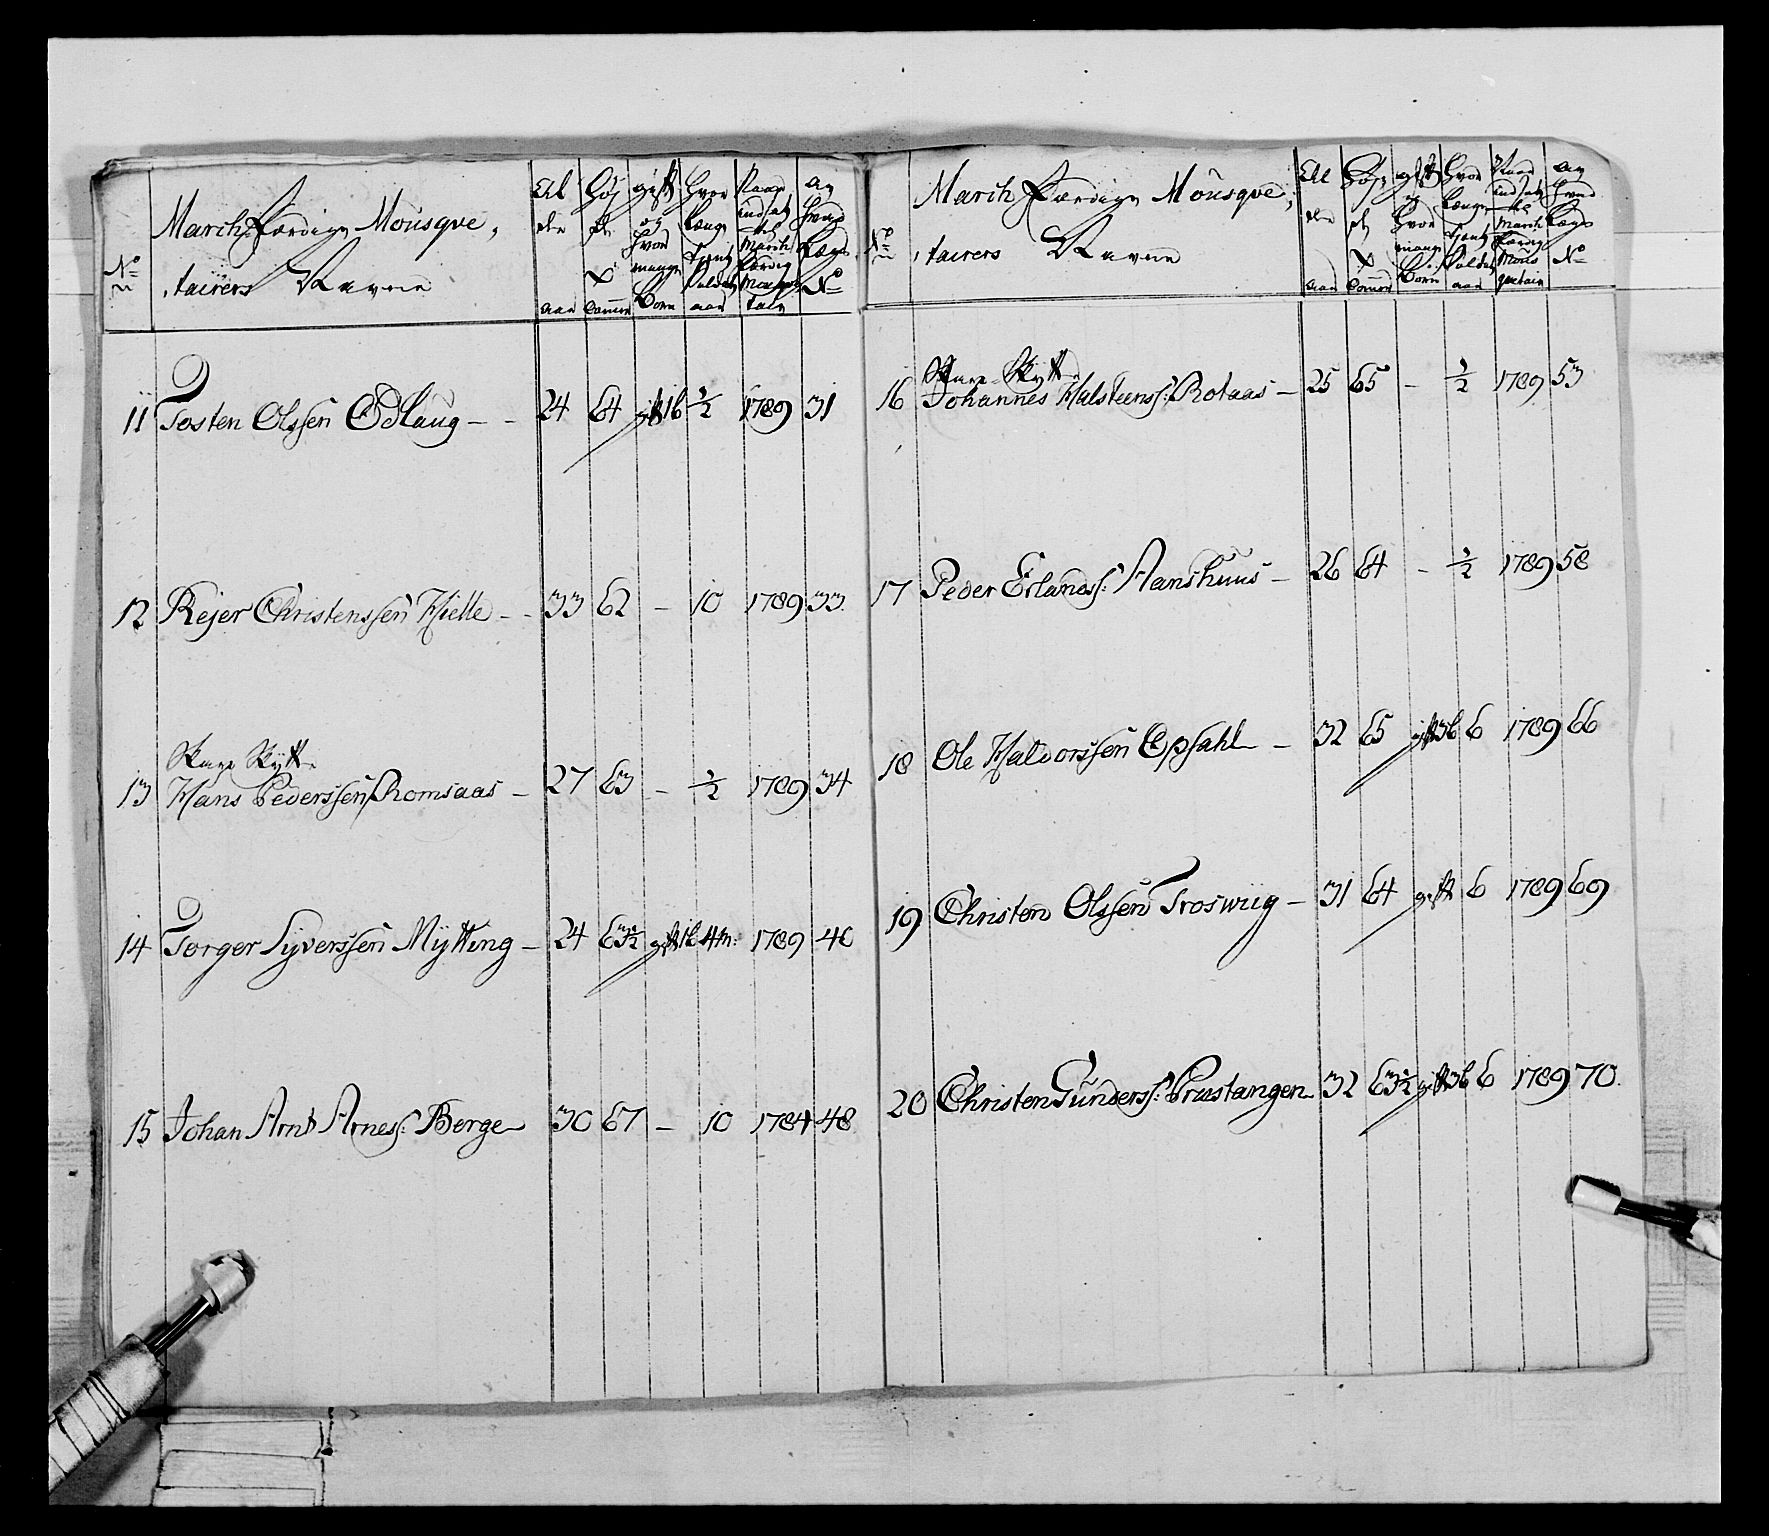 March Færdige Mousqve,
,tairers Navne
No
Al der aar
Høj de X Comm
gift og hvor mange Børn
Hvor længe tjent Soldat aar
Naar indsat til March færdig Mousqve tair
Av hvad Lægs No
11 Tosten Olssen Odlaug - - 24 64 gift 1 b ½ 1789 31
12 Rejer Christenssen Hielle - - 33 62 - 10 1789 33
Skarp Skytt
13 Hans Pederssen Romsaas - 27 63 - ½ 1789 34
14 Torger Syverssen Mytting - 24 63½ gift 1 b 4 M: 1789 46
15 Johan Arnt Arness: Berge 30 67 - 10 1784 48
March Færdige Mousqve,
,tairers Navne
No
Al der aar
Høj de X Comm
gift og hvor mange Børn
Hvor længe tjent Soldat aar
Naar indsat til March færdig Mousqvetair
Av hvad Lægs No
Skarp Skytt
16 Johannes Halsteenss: Rotaas - 25 65 - ½ 1789 53
17 Peder Erlandss: Aanshuus - 26 64 - ½ 1789 58
18 Ole Halvorssen Opsahl - 32 65 gift 3 b 6 1789 66
19 Christen Olssen Troswiig - 31 64 gift 6 1789 69
20 Christen Gunderss: Prustangen 32 63½ gift 3 b 6 1789 70